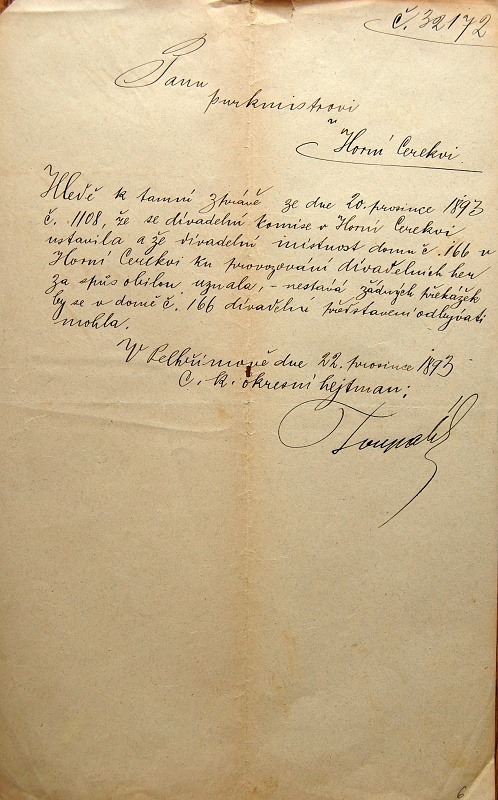 č. 32172
Panu
purkmistrovi
v
Horní Cerekvi
Hledě k tamní zprávě ze dne 20. prosince 1893
č. 1108, že se divadelní komise v Horní Cerekvi
ustavila a že divadelní místnost domu č. 166 v
Horní Cerekvi ku provozování divadelních her
za spůsobilou uznala, - nestává žádných překážek
by se v domě č. 166 divadelní představení odbývati
mohla.
V Pelhřimově dne 22. prosince 1893
C. k. okresní hejtman:
6